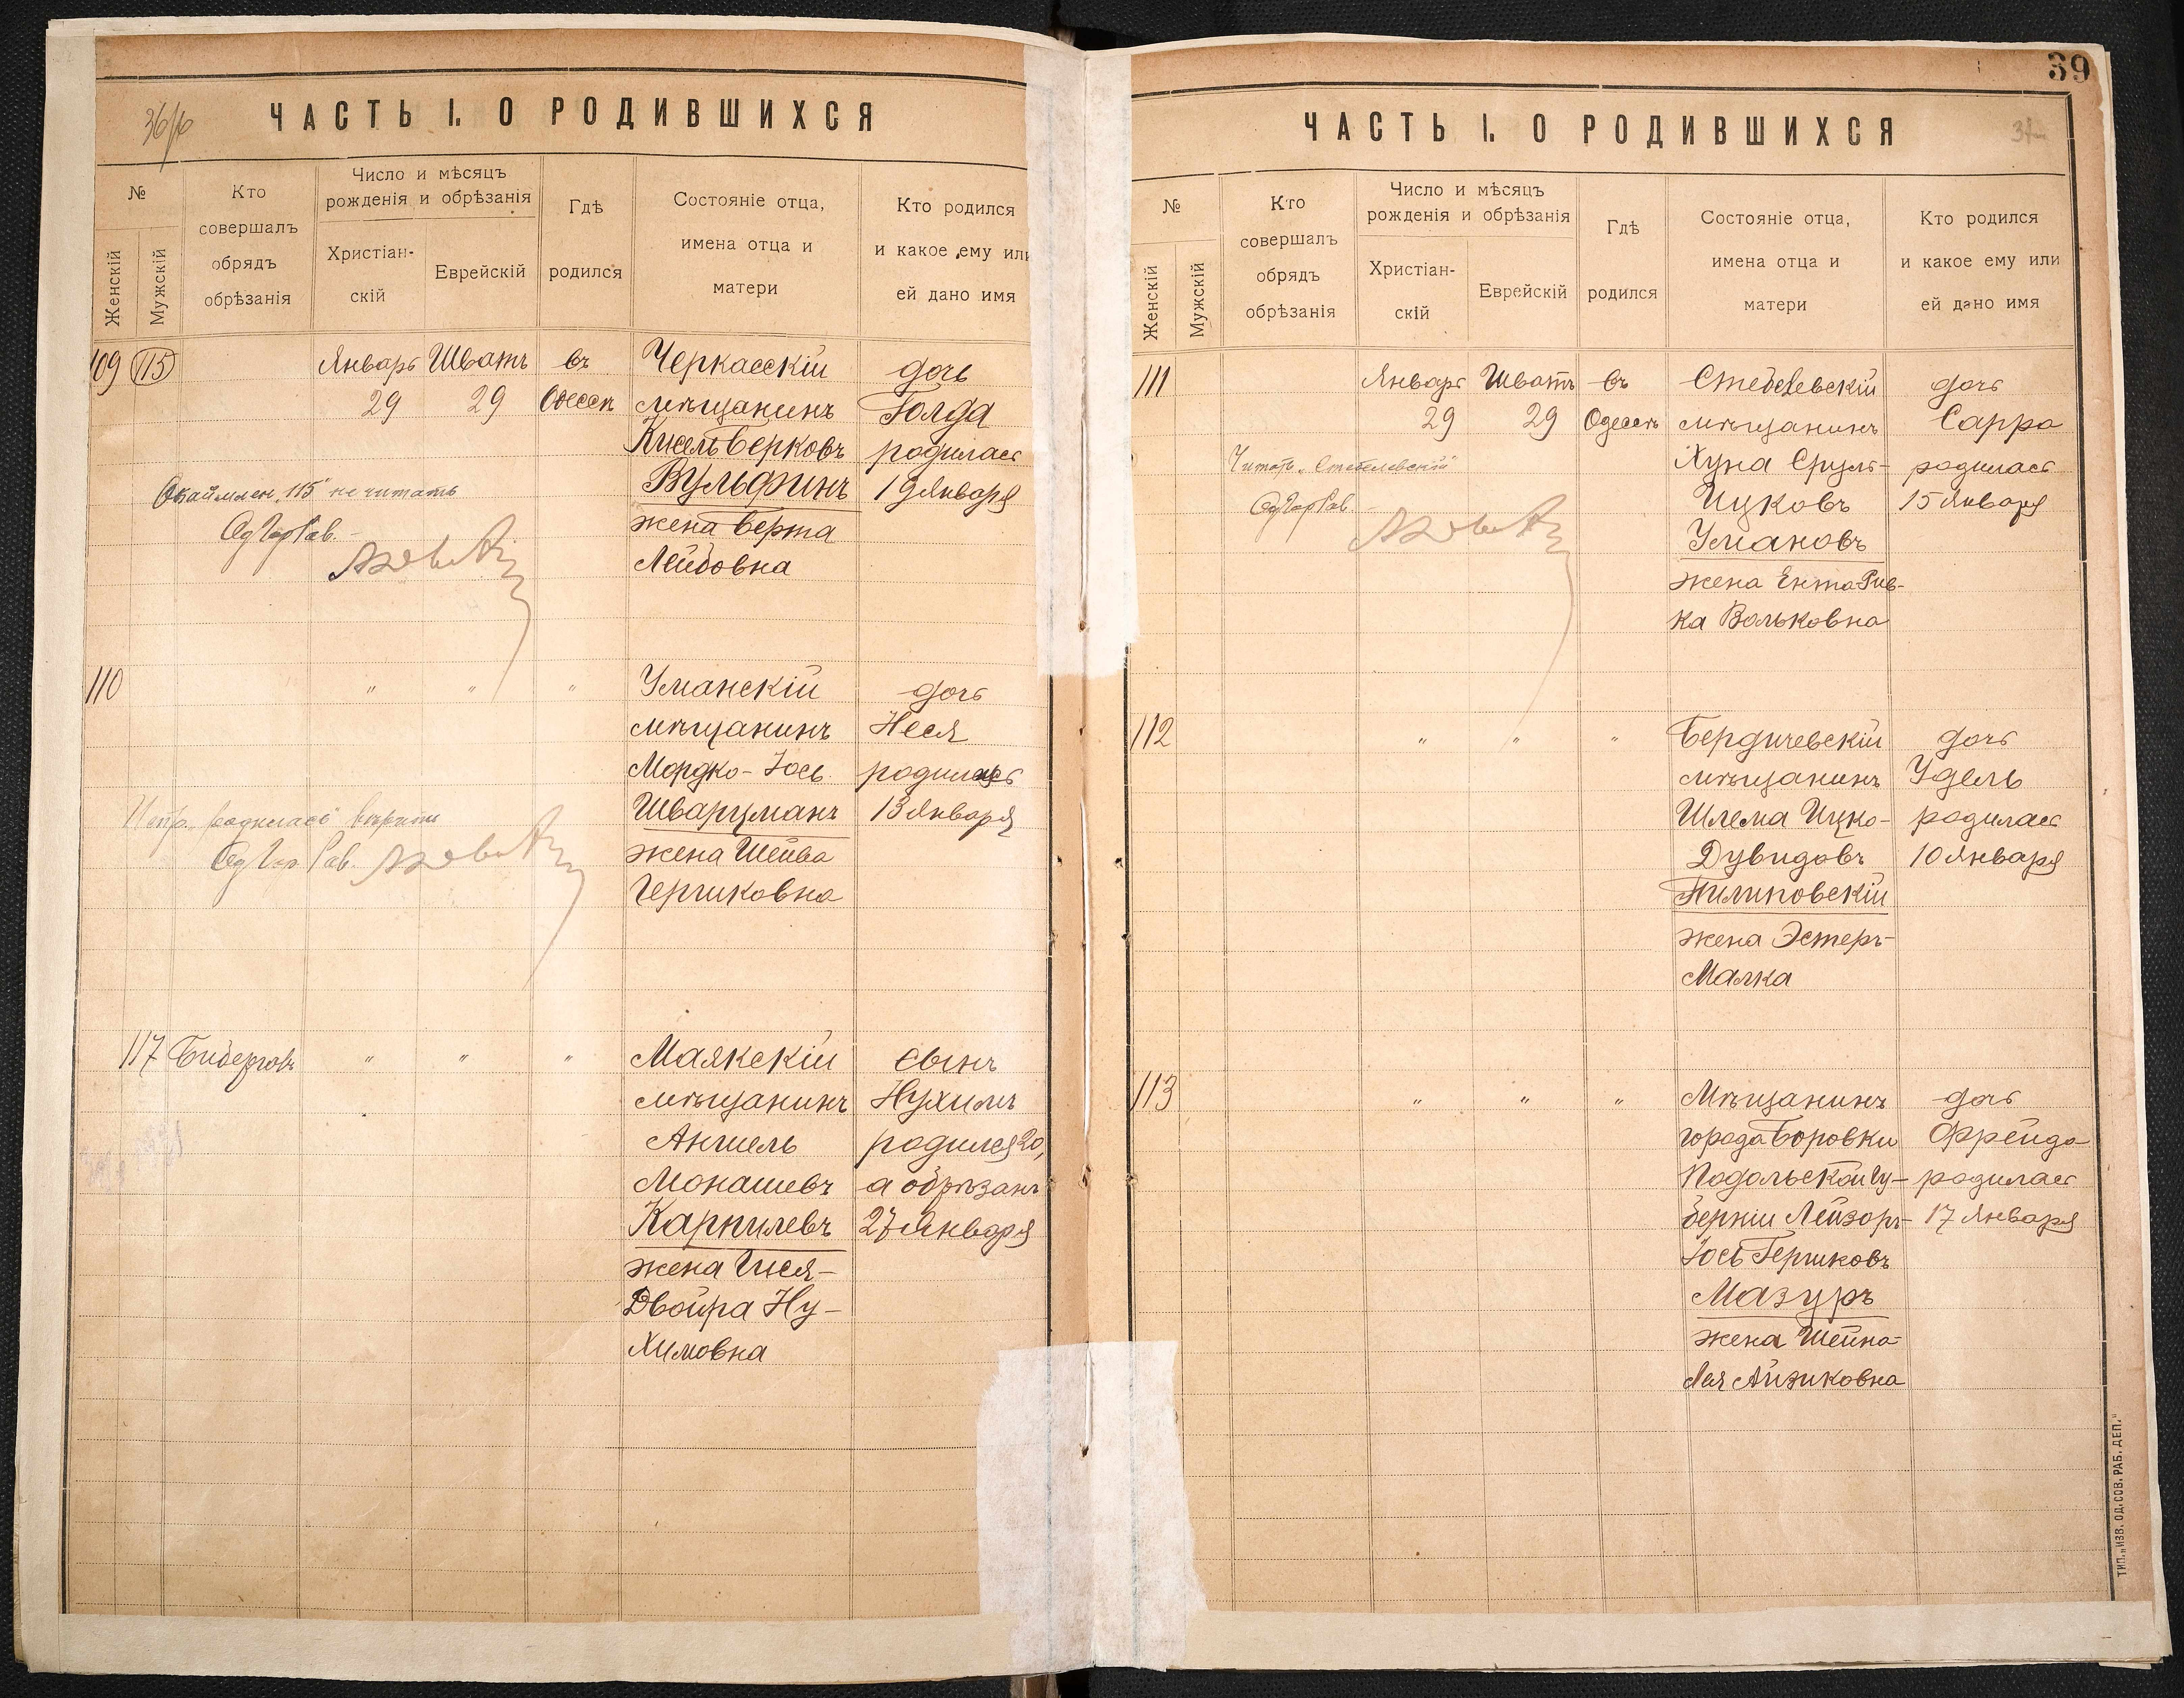 36/10
ЧАСТЬ I. О РОДИВШИХСЯ
№
Женскій
Мужскій
Кто
совершалъ
обрядъ
обрѣзанія
Число и мѣсяцъ
рожденія и обрѣзанія
Христіан-
скій
Еврейскій
Гдѣ
родился
Состояніе отца,
имена отца и
матери
Кто родился
и какое ему или
ей дано имя
109 115 Январь Шватъ въ Черкасскій дочь
29 29 Одессѣ мѣщанинъ Голда
Кисель Берковъ родилась
Вульфинъ 19 Января
Окаймлен. "115" не читать
Од Гор Рав.
жена Берта
Лейбовна
110 " " " Уманскій дочь
мѣщанинъ Неся
Мордко-Іось родилась
Шварцманъ 13 Января
"родилась" вѣрить
Од Гор. Рав.
жена Шейва
Гершковна
117 " " " Маякскій сынъ
мѣщанинъ Нухимъ
Аншель родился 20,
Монашевъ а обрѣзанъ
Карпилевъ 27 Января
жена Гися-
Двойра Ну-
химовна
39
ЧАСТЬ I. О РОДИВШИХСЯ
№
Женскій
Мужскій
Кто
совершалъ
обрядъ
обрѣзанія
Число и мѣсяцъ
рожденія и обрѣзанія
Христіан-
скій
Еврейскій
Гдѣ
родился
Состояніе отца,
имена отца и
матери
Кто родился
и какое ему или
ей дано имя
111 Январь Шватъ въ Стебелевскій дочь
29 29 Одессѣ мѣщанинъ Сарра
Читать "Стебелевскій"
Од Гор Рав.
Хуна Сруль- родилась
Ицковъ 15 Января
Умановъ
жена Ента-Рив-
ка Вольковна
112 " " " Бердичевскій дочь
мѣщанинъ Удель
Шлема Ицко- родилась
Дувидовъ 10 Января
Пилиповскій
жена Эстеръ-
Малка
113 " " " Мѣщанинъ дочь
города Боровки Фрейда
Подольской Гу- родилась
берніи Лейзоръ- 17 Января
Іось Гершковъ
Мазуръ
жена Шейна-
Лея Айзиковна
ТИП. „ИЗВ. ОД. СОВ. РАБ. ДЕП."